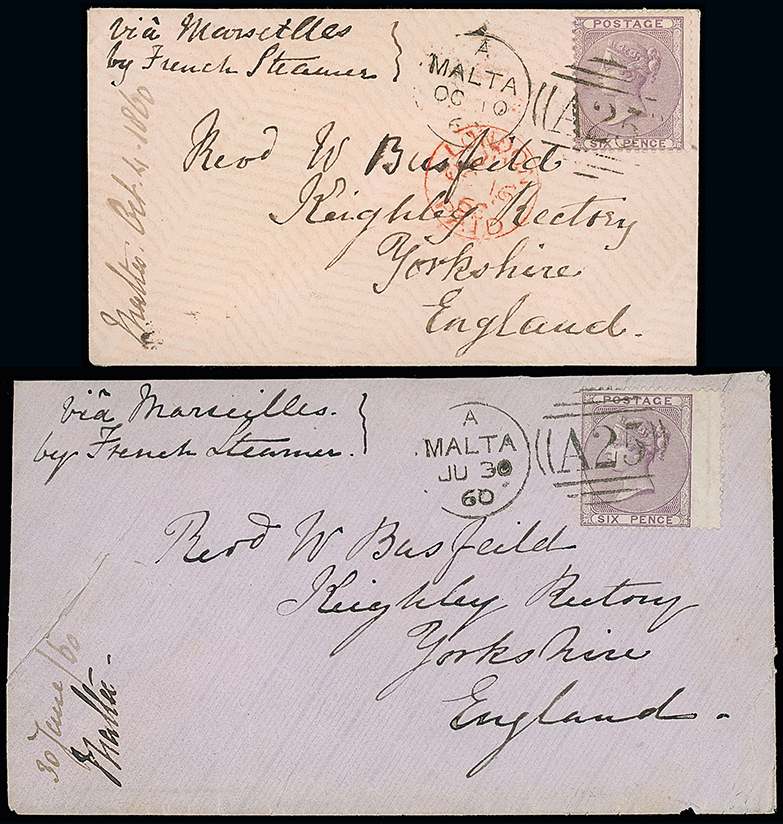 via Marseilles
by French Steamer
A
MALTA
OC 10
6
A25
POSTAGE
SIX PENCE
LONDON
Revd W Busfeild
Keighley Rectory
Yorkshire
England.
Malta. Oct. 4. 1860
via Marseilles.
by French Steamer.
A
MALTA
JU 30
60
A25
POSTAGE
SIX PENCE
Revd W Busfeild
Keighley Rectory
Yorkshire
England.
30 June/60
Malta.